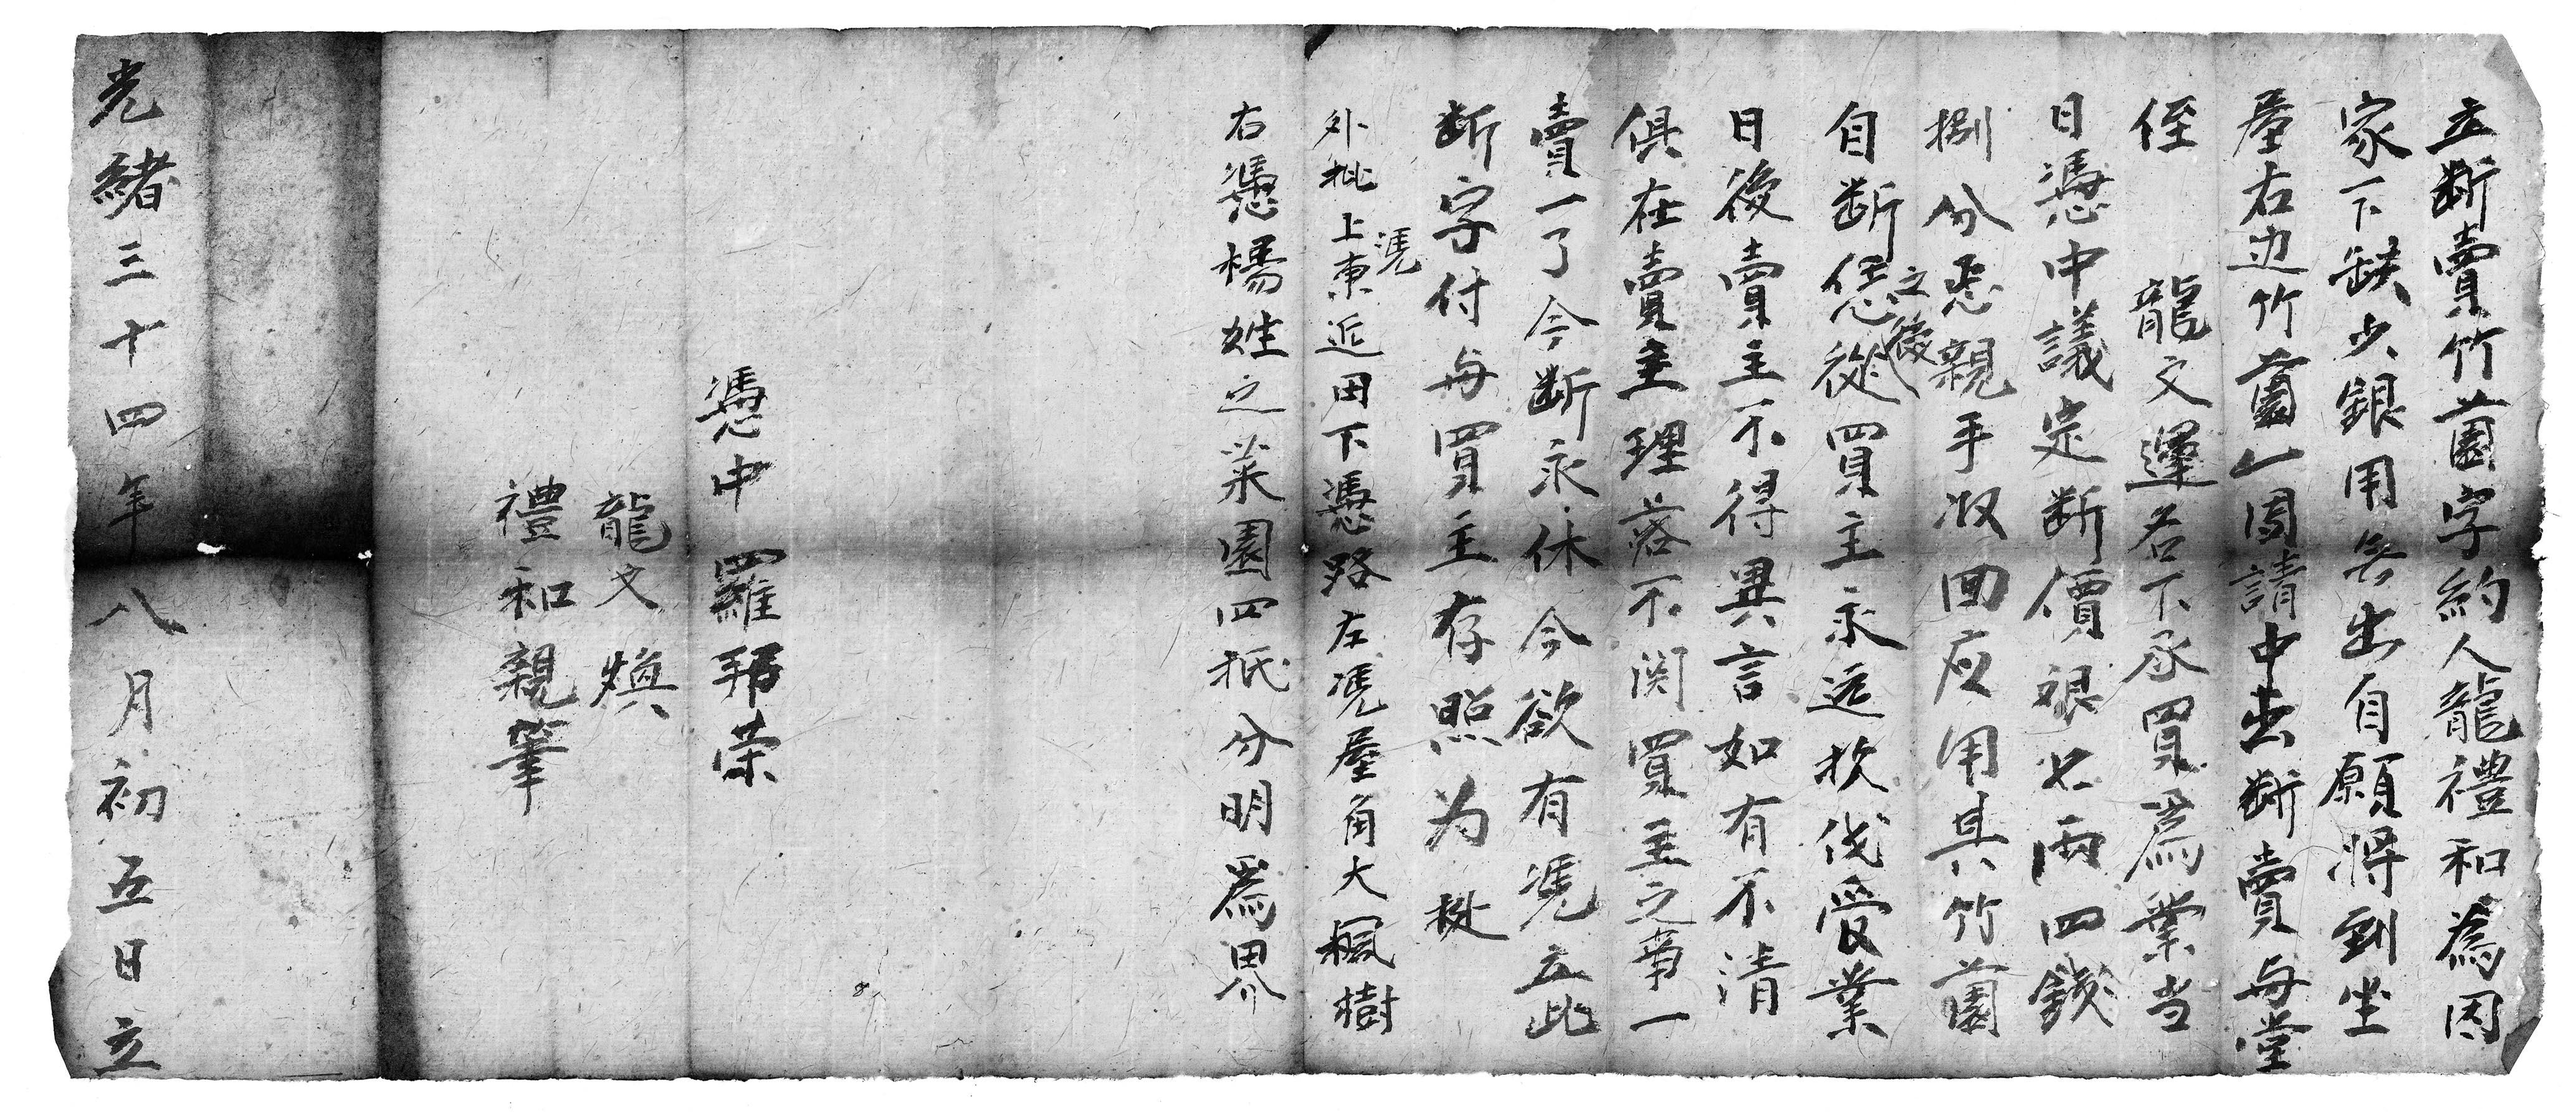 立断賣竹薗字約人龍禮和為因
家下缺少銀用無出自願将到坐
屋右边竹薗一園請中出断賣与堂
侄　龍文運名下承買為業当
日憑中議定断價艮七両四錢
捌分悉親手収回应用其竹薗
自断之後恁從買主永远砍伐受業
日後賣主不得異言如有不清
俱在賣主理落不関買主之事一
賣一了今断永休今欲有凴立此
断字付与買主存照为㨿
外批上凴東近田下憑路左凴屋角大楓樹
右憑楊姓之菜園四抵分明為界
憑中　羅邦荣
龍文煥
禮和親筆
光緒三十四年八月初五日立